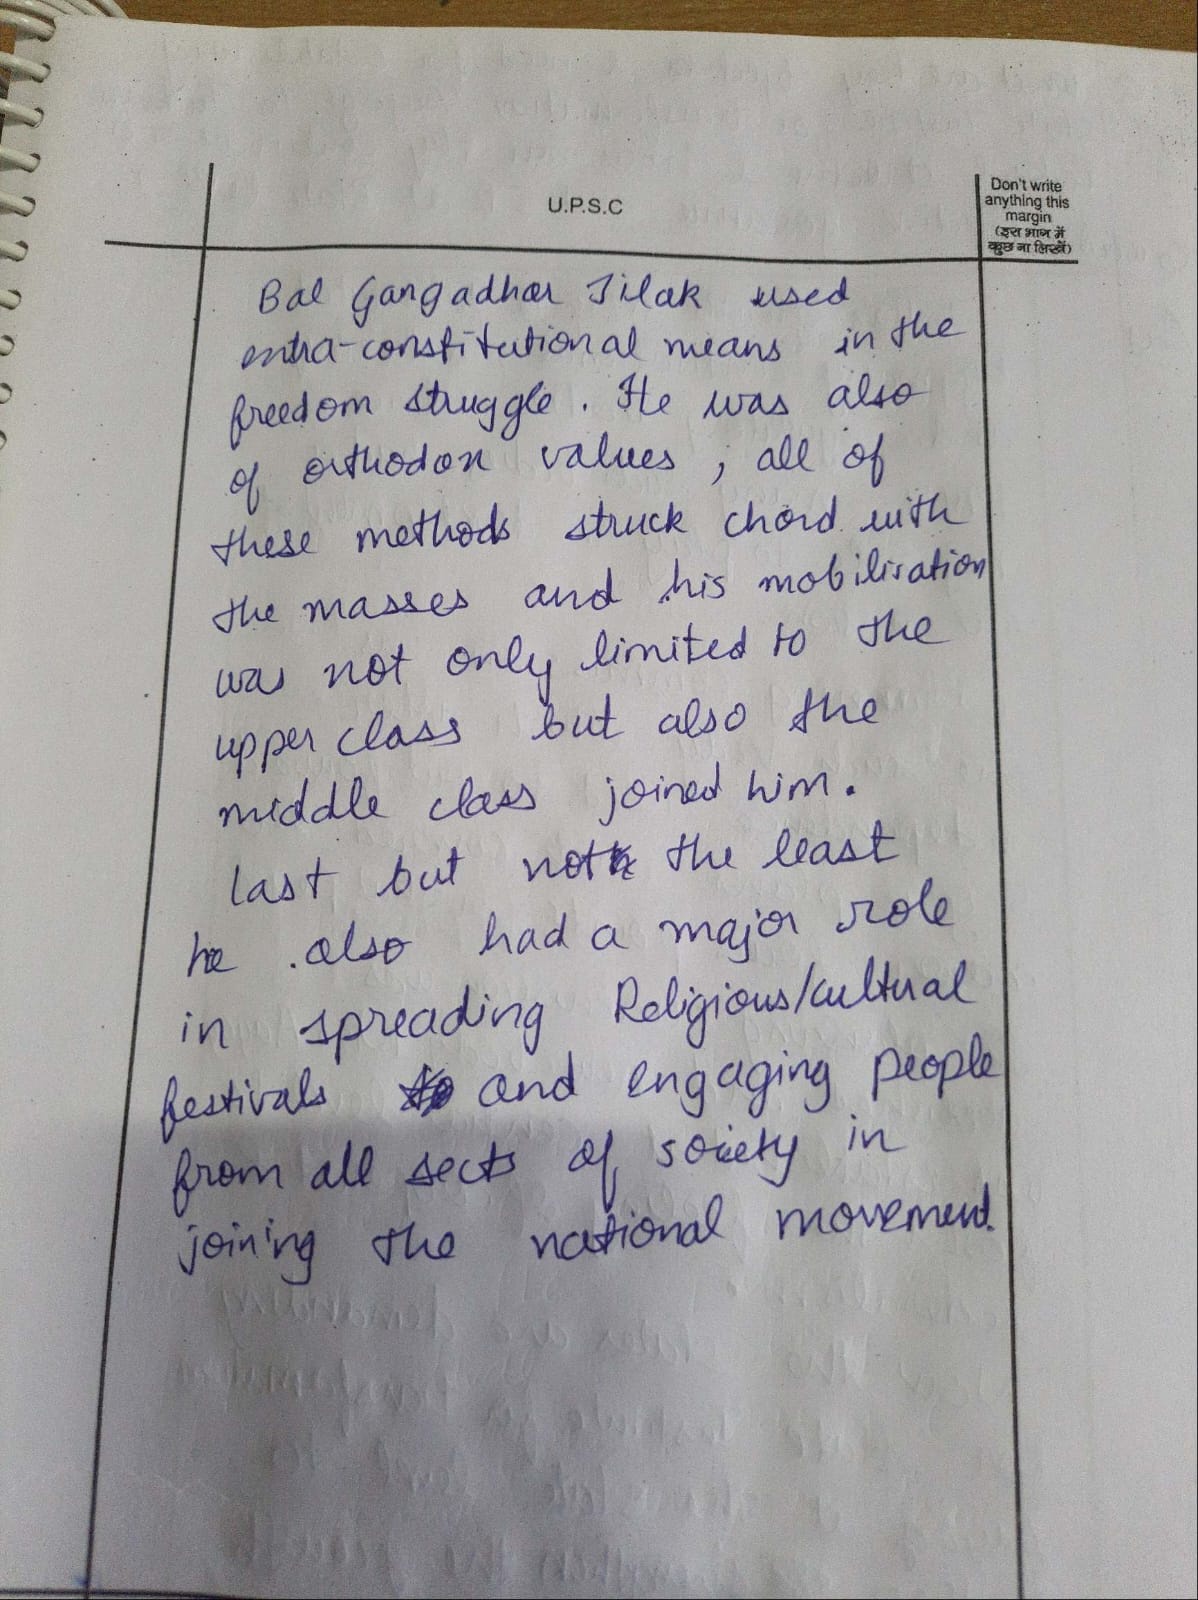 U.P.S.C
Don't write
anything this
margin
(इस भाग में
कुछ ना लिखें)
Bal Gangadhar Tilak used
extra-constitutional means in the
freedom struggle. He was also
of orthodox values, all of
these methods struck chord with
the masses and his mobilisation
was not only limited to the
upper class but also the
middle class joined him.
last but not the least
he also had a major role
in spreading Religious/cultural
festivals and engaging people
from all sects of society in
joining the national movement.